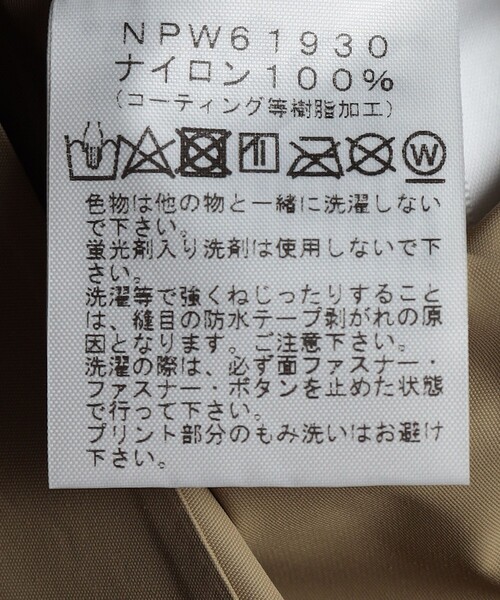 NPW61930
ナイロン100%
(コーティング等樹脂加工)
W
色物は他の物と一緒に洗濯しない
で下さい。
蛍光剤入り洗剤は使用しないで下
さい。
洗濯等で強くねじったりすること
は、縫目の防水テープ剥がれの原
因となります。ご注意下さい。
洗濯の際は、必ず面ファスナー・
ファスナー・ボタンを止めた状態
で行って下さい。
プリント部分のもみ洗いはお避け
下さい。